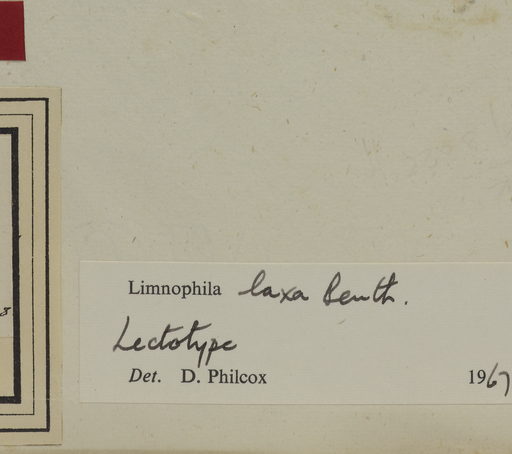 Limnophila laxa Benth.
Lectotype
Det. D. Philcox 1967